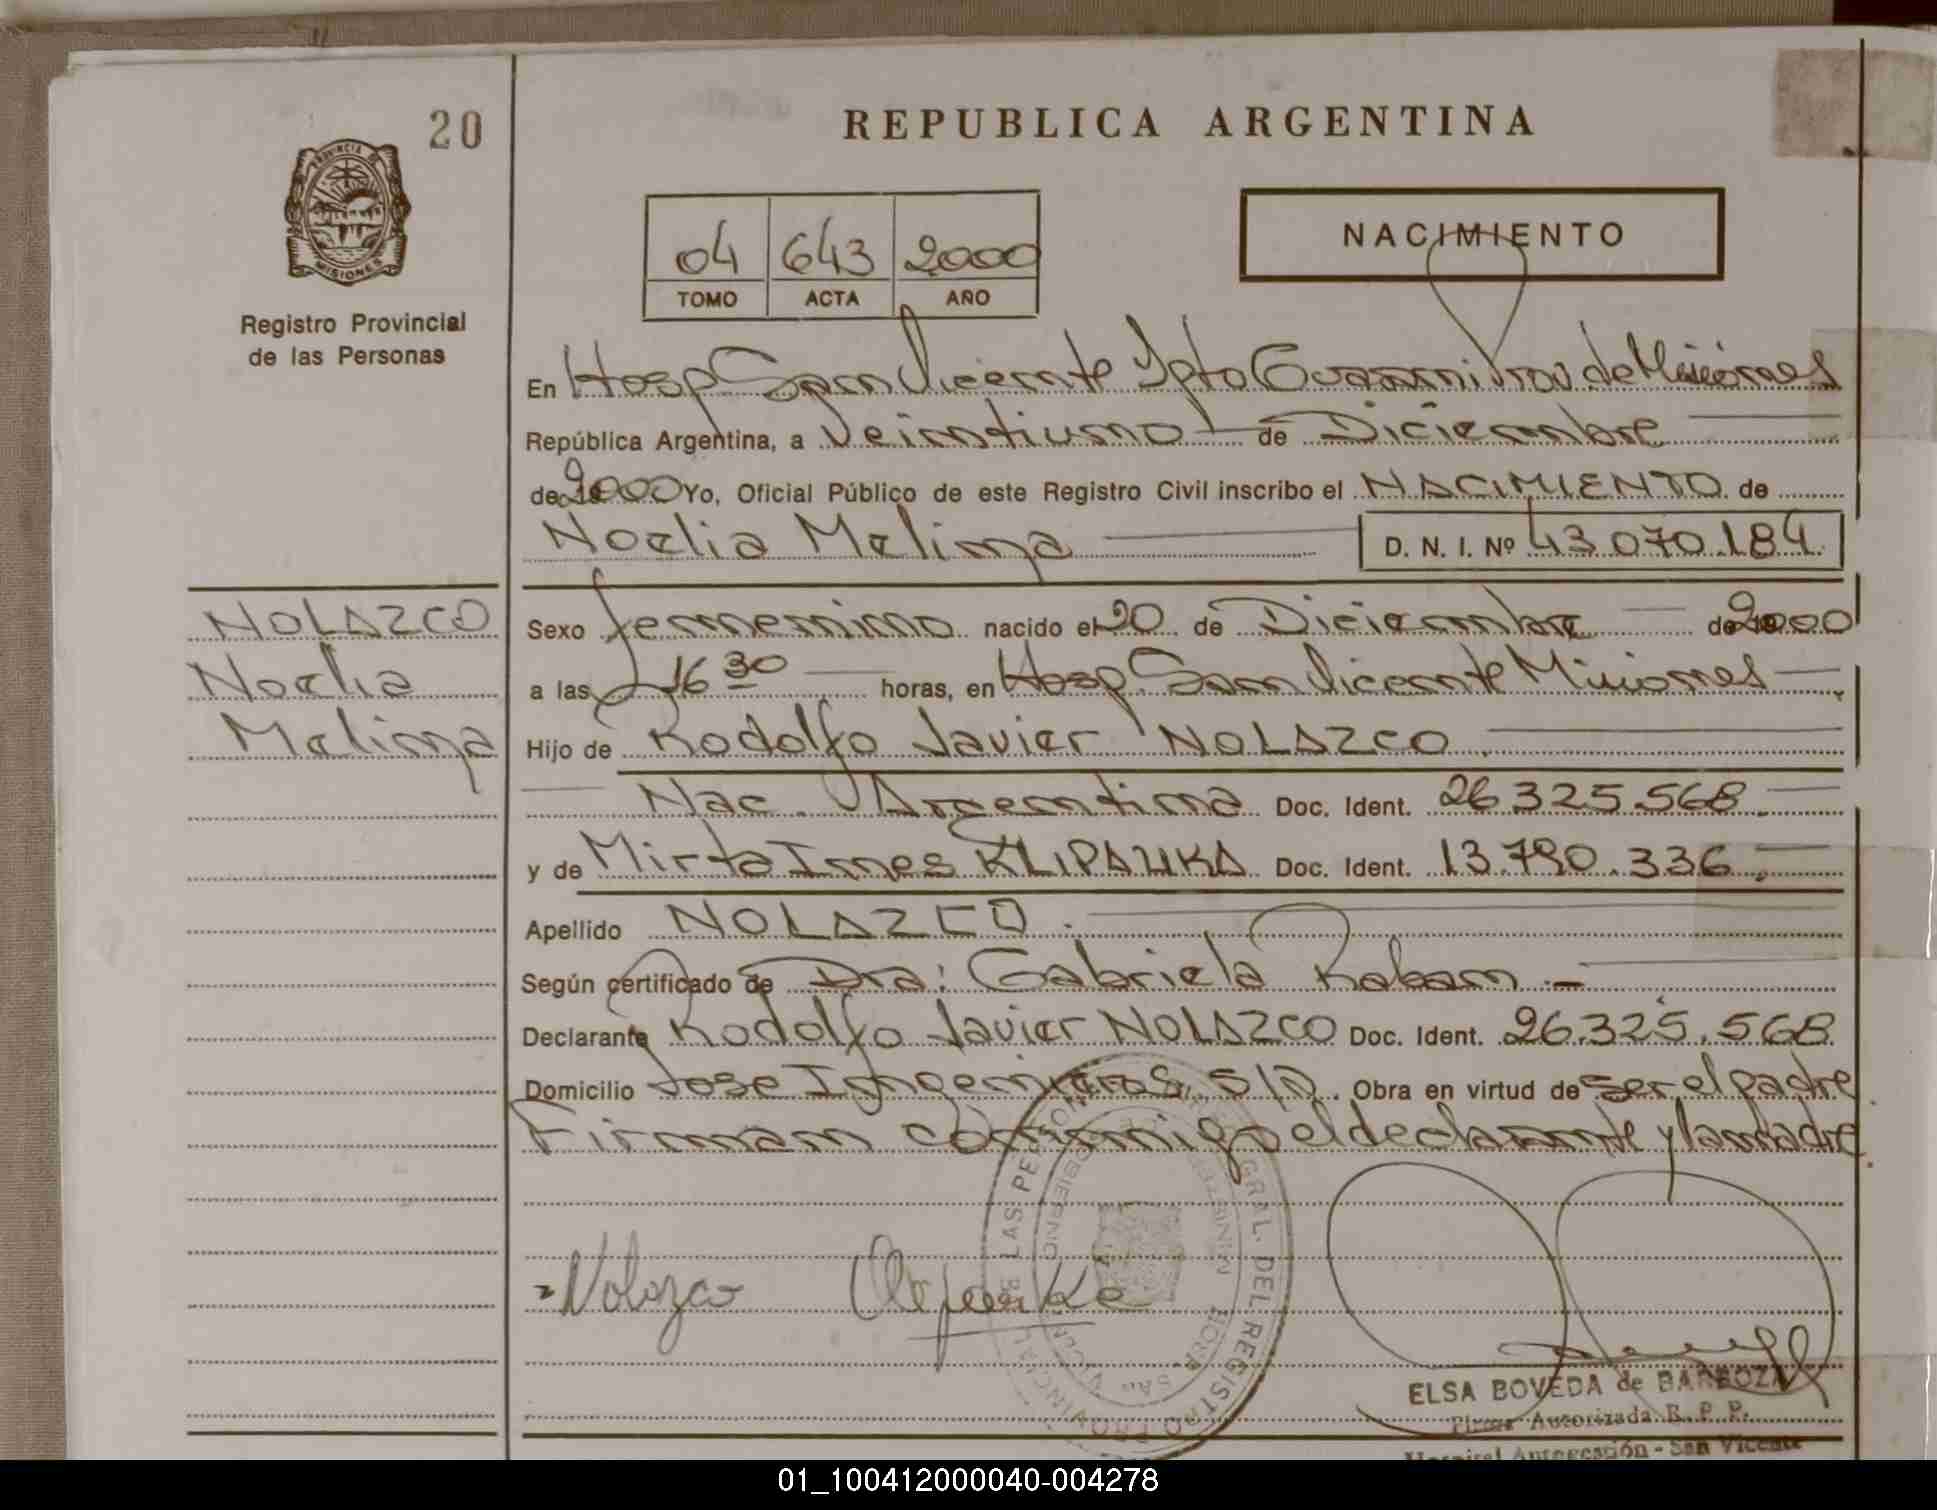 20
REPUBLICA ARGENTINA
PROVINCIA DE
MISIONES
Registro Provincial
de las Personas
04 643 2000
TOMO ACTA AÑO
NACIMIENTO
En Hosp San Vicente Dpto Guarani Prov de Misiones
República Argentina, a Veintiuno de Diciembre
de 2000 Yo, Oficial Público de este Registro Civil inscribo el NACIMIENTO de
Noelia Melina
D. N. I. Nº 43.070.184
NOLAZCO
Noelia
Melina
Sexo femenino nacido el 20 de Diciembre de 2000
a las 16 30 horas, en Hosp. San Vicente Misiones
Hijo de Rodolfo Javier NOLAZCO
Nac. Argentina Doc. Ident. 26.325.568
y de Mirta Ines KLIPAUKA Doc. Ident. 13.790.336
Apellido NOLAZCO
Según certificado de Dra: Gabriela Raban
Declarante Rodolfo Javier NOLAZCO Doc. Ident. 26.325.568
Domicilio Jose Ingenieros S/N. Obra en virtud de ser el padre
Firman conmigo el declarante y la madre
Nolazco
ELSA BOVEDA de BARBOZA
Firma Autorizada R. P. P.
Hospital Autogestión - San Vicente
01_100412000040-004278